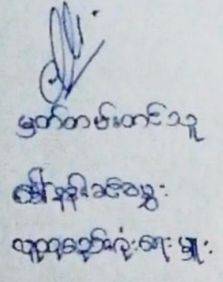 မှတ်တမ်းတင်သူ
ဒေါ်နန်းခင်ထွေး
လူထုစည်းရုံးရေးမှူး